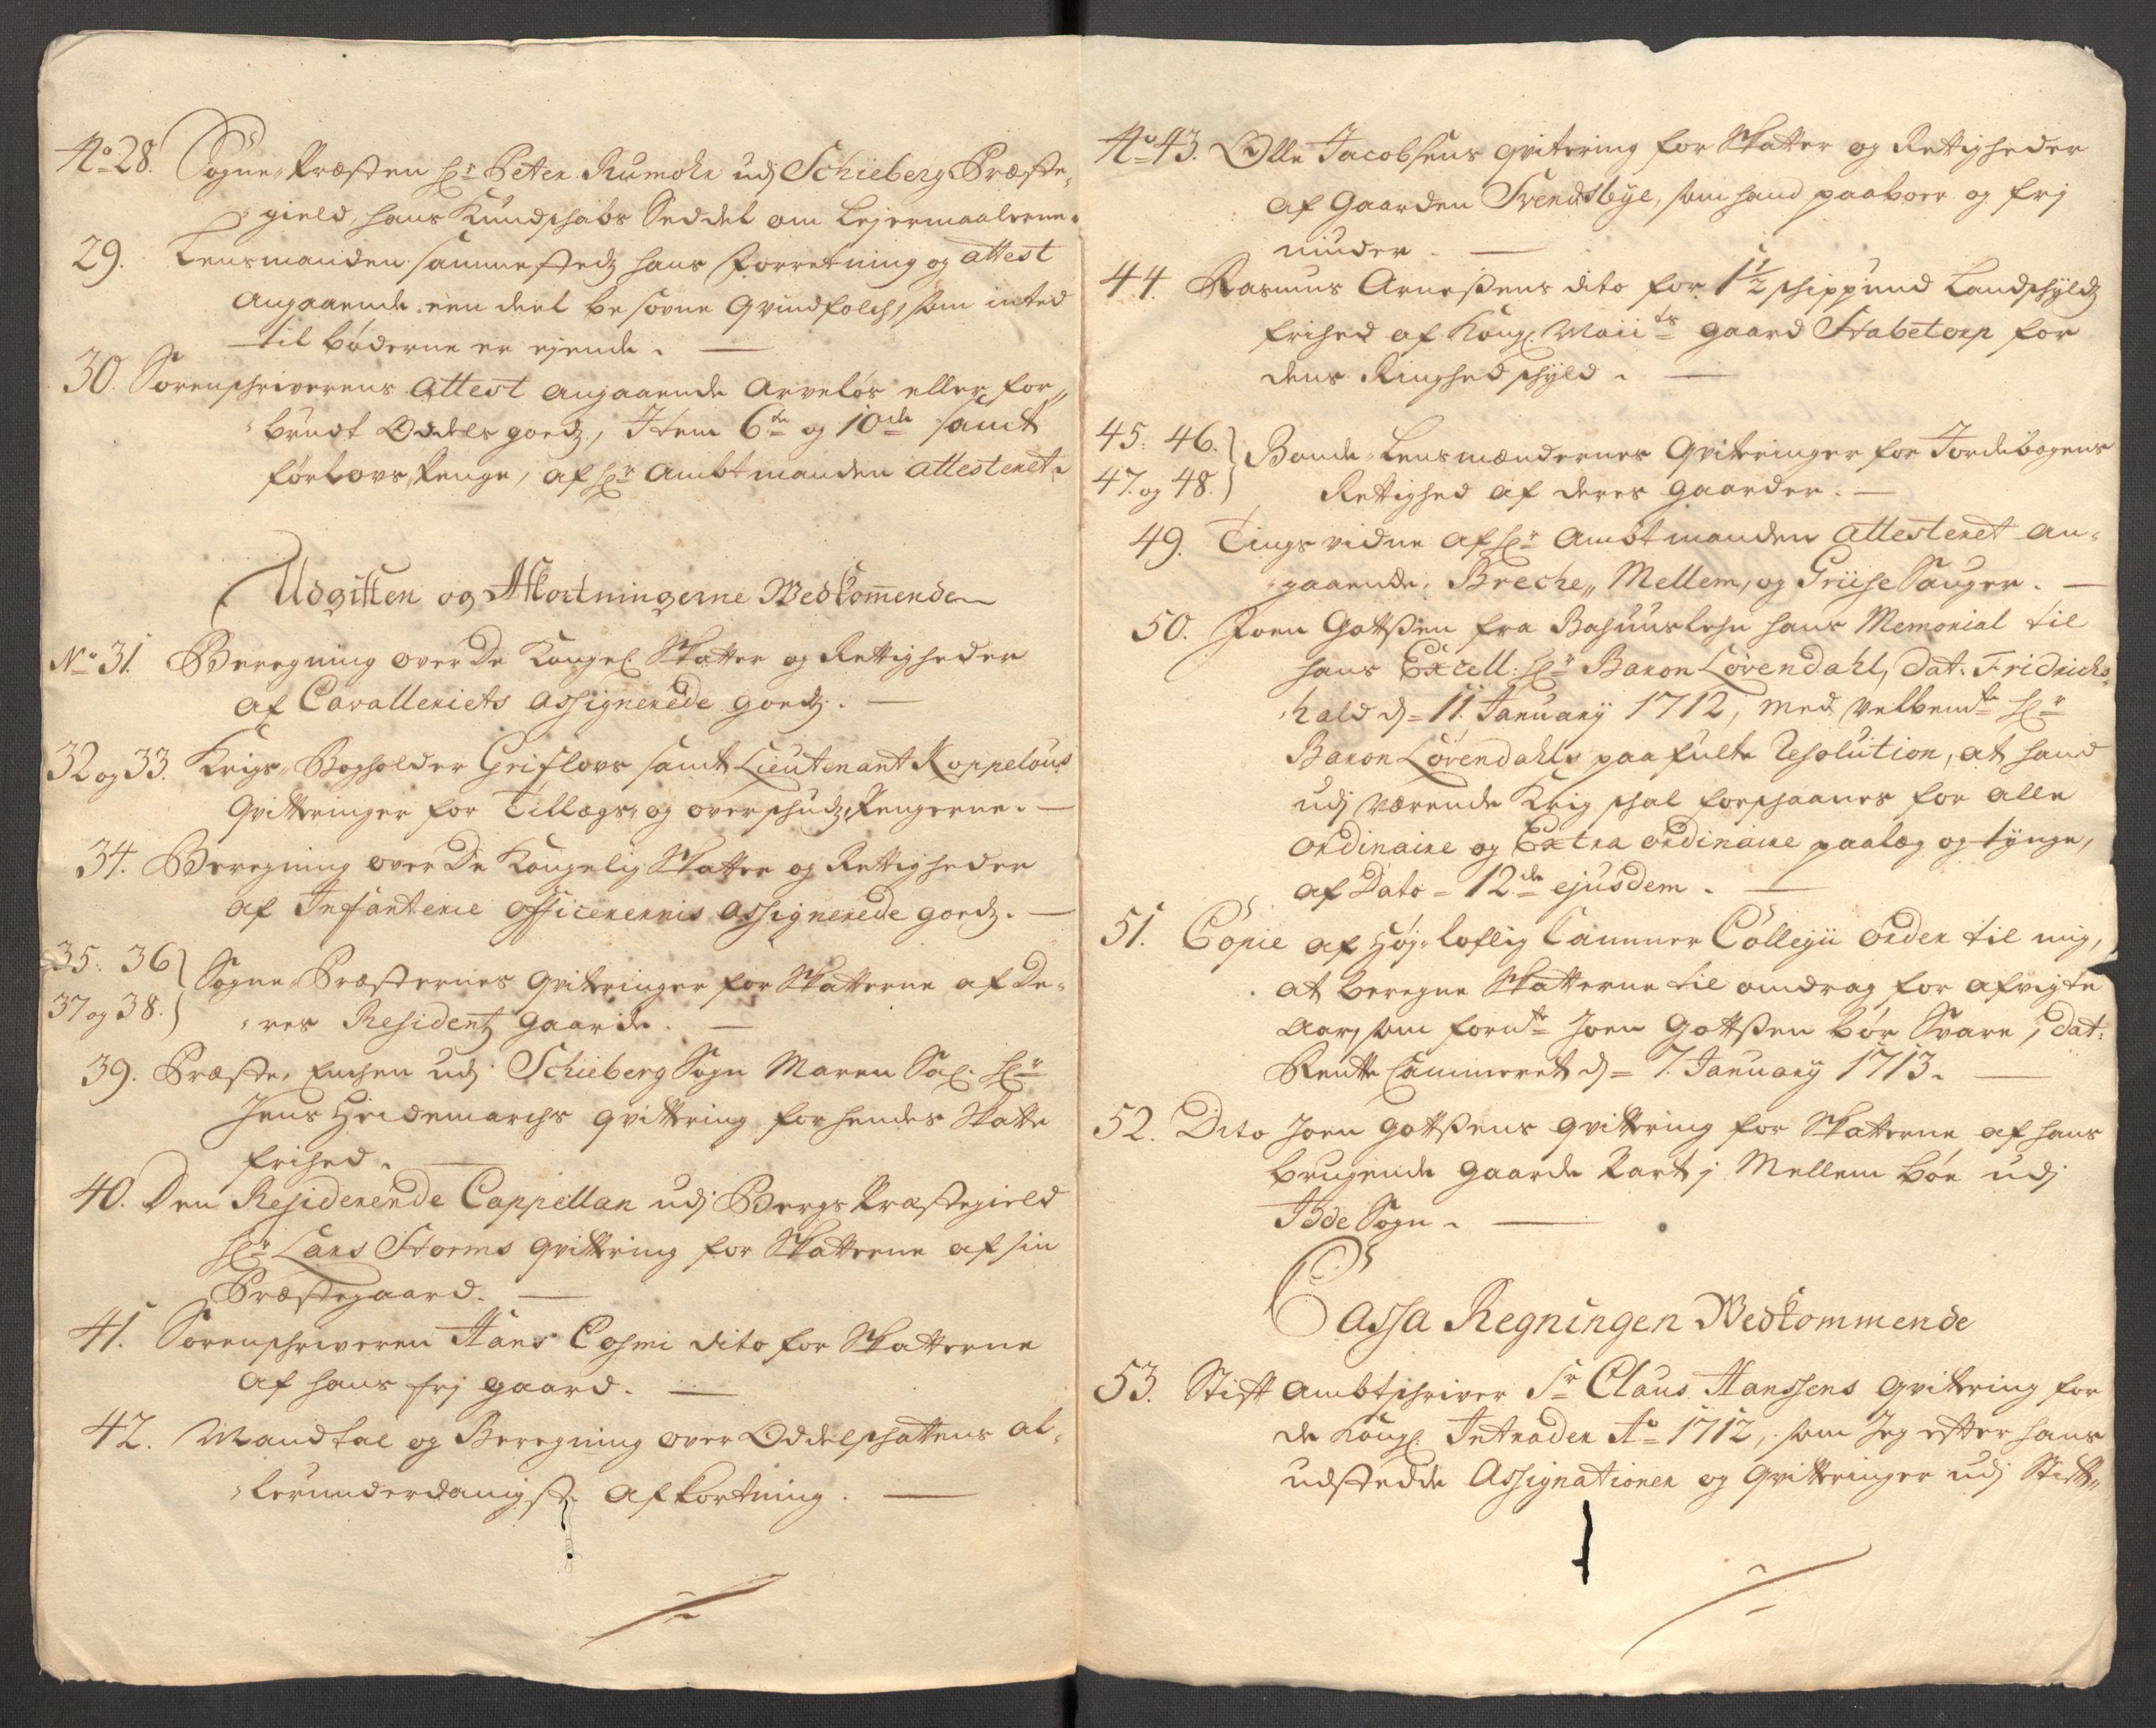 No 28. Sogne Præsten hr Peter Rumohr udj Schieberg Præste„
„gield, hans Kundschabs Seddel om Lejermaalerne.
29. Lensmanden sammestedz hans forretning og attest
angaaende een deel besovne Qvindfolch, som inted
til bøderne er ejende.
30. Sorenschriverens attest angaaende Arveløs eller for„
„brudt Oddels godz, Item 6te og 10de samt
førlovs Penge, af hr Ambtmanden attesteret.
Udgiften og Afkortningerne Vedkommende
No 31. Beregning over De Kongel. Skatter og Rettigheder
af Cavalleriets assignerede godz.
32 og 33. Krigs„ Bogholder Griflovs samt Lieutenant Koppelous
Qvitteringer for Tillægs„ og overschudz Pengerne.
34. Beregning over De Kongelig Skatter og Rettigheder
af Infanterie officerernis assignerede godz.
35. 36
37 og 38. Sogne„ Præsternes Qvitteringer for Skatterne af De„
„res Residentz gaarde.
39. Præste„ Enchen udj Schieberg Sogn Maren Sal. hr
Jens Heidemarchs qvittering for hendes Skatte
frihed.
40. Den Residerende Cappellan udj Bergs Præstegield
hr Lars Storms qvittering for Skatterne af sin
Præstegaard.
41. Sorenschriveren Hans Cosmi dito for Skatterne
af hans frj gaard.
42. Mandtal og Beregning over Oddelschattens al„
„lerunderdanigste Afkortning.
No 43. Olle Jacobsens qvitering for Skatter og Rettigheder
af Gaarden Svendsbye, som hand paaboer og frj
niuder.
44. Rasmus Arneßens dito for 1½ schippund Landschyldz
frihed af Kongl. Maiits gaard Stabetorp for
dens Ringhed schyld.
45. 46.
47. og 48. Bonde„ Lensmændernes Qvitteringer for Jordebogens
Rettighed af deres gaarder.
49. Tings vidne af hr Ambtmanden attesteret an„
„gaaende, Breche„ Mellem, og Griise Sauger.
50. Joen Gottßen fra Bahuuslehn hans Memorial til
hans Excell: hr Baron Løvendahl, Dat: Fridrichs„
„hald d= 11. January 1712, med velbemte hr
Baron Løvendahls paafulte Resolution, at hand
udj værende Krig schal forschaanes for alle
ordinaire og Extra ordinaire paalæg og tynge,
af Dato= 12de ejusdem.
51. Copie af Høj„ loflig Cammer Collegii order til mig,
at beregne Skatterne til andrag for afvigte
Aar, som formte Joen Gottßen bør Svare, dat:
Rentte Cammeret d= 7. January 1713.
52. Dito Joen Gottßens qvittering for Skatterne af hans
brugende gaarde Part j Mellem bøe udj
Idde Sogn.
Cassa Regningen Vedkommende
53. Stift Ambtschriver Sr Claus Hanssens qvittering for
de Kongl. Intrader Ao 1712, som Jeg efter hans
udstedde Assignationer og Qvitteringer udj Stift„